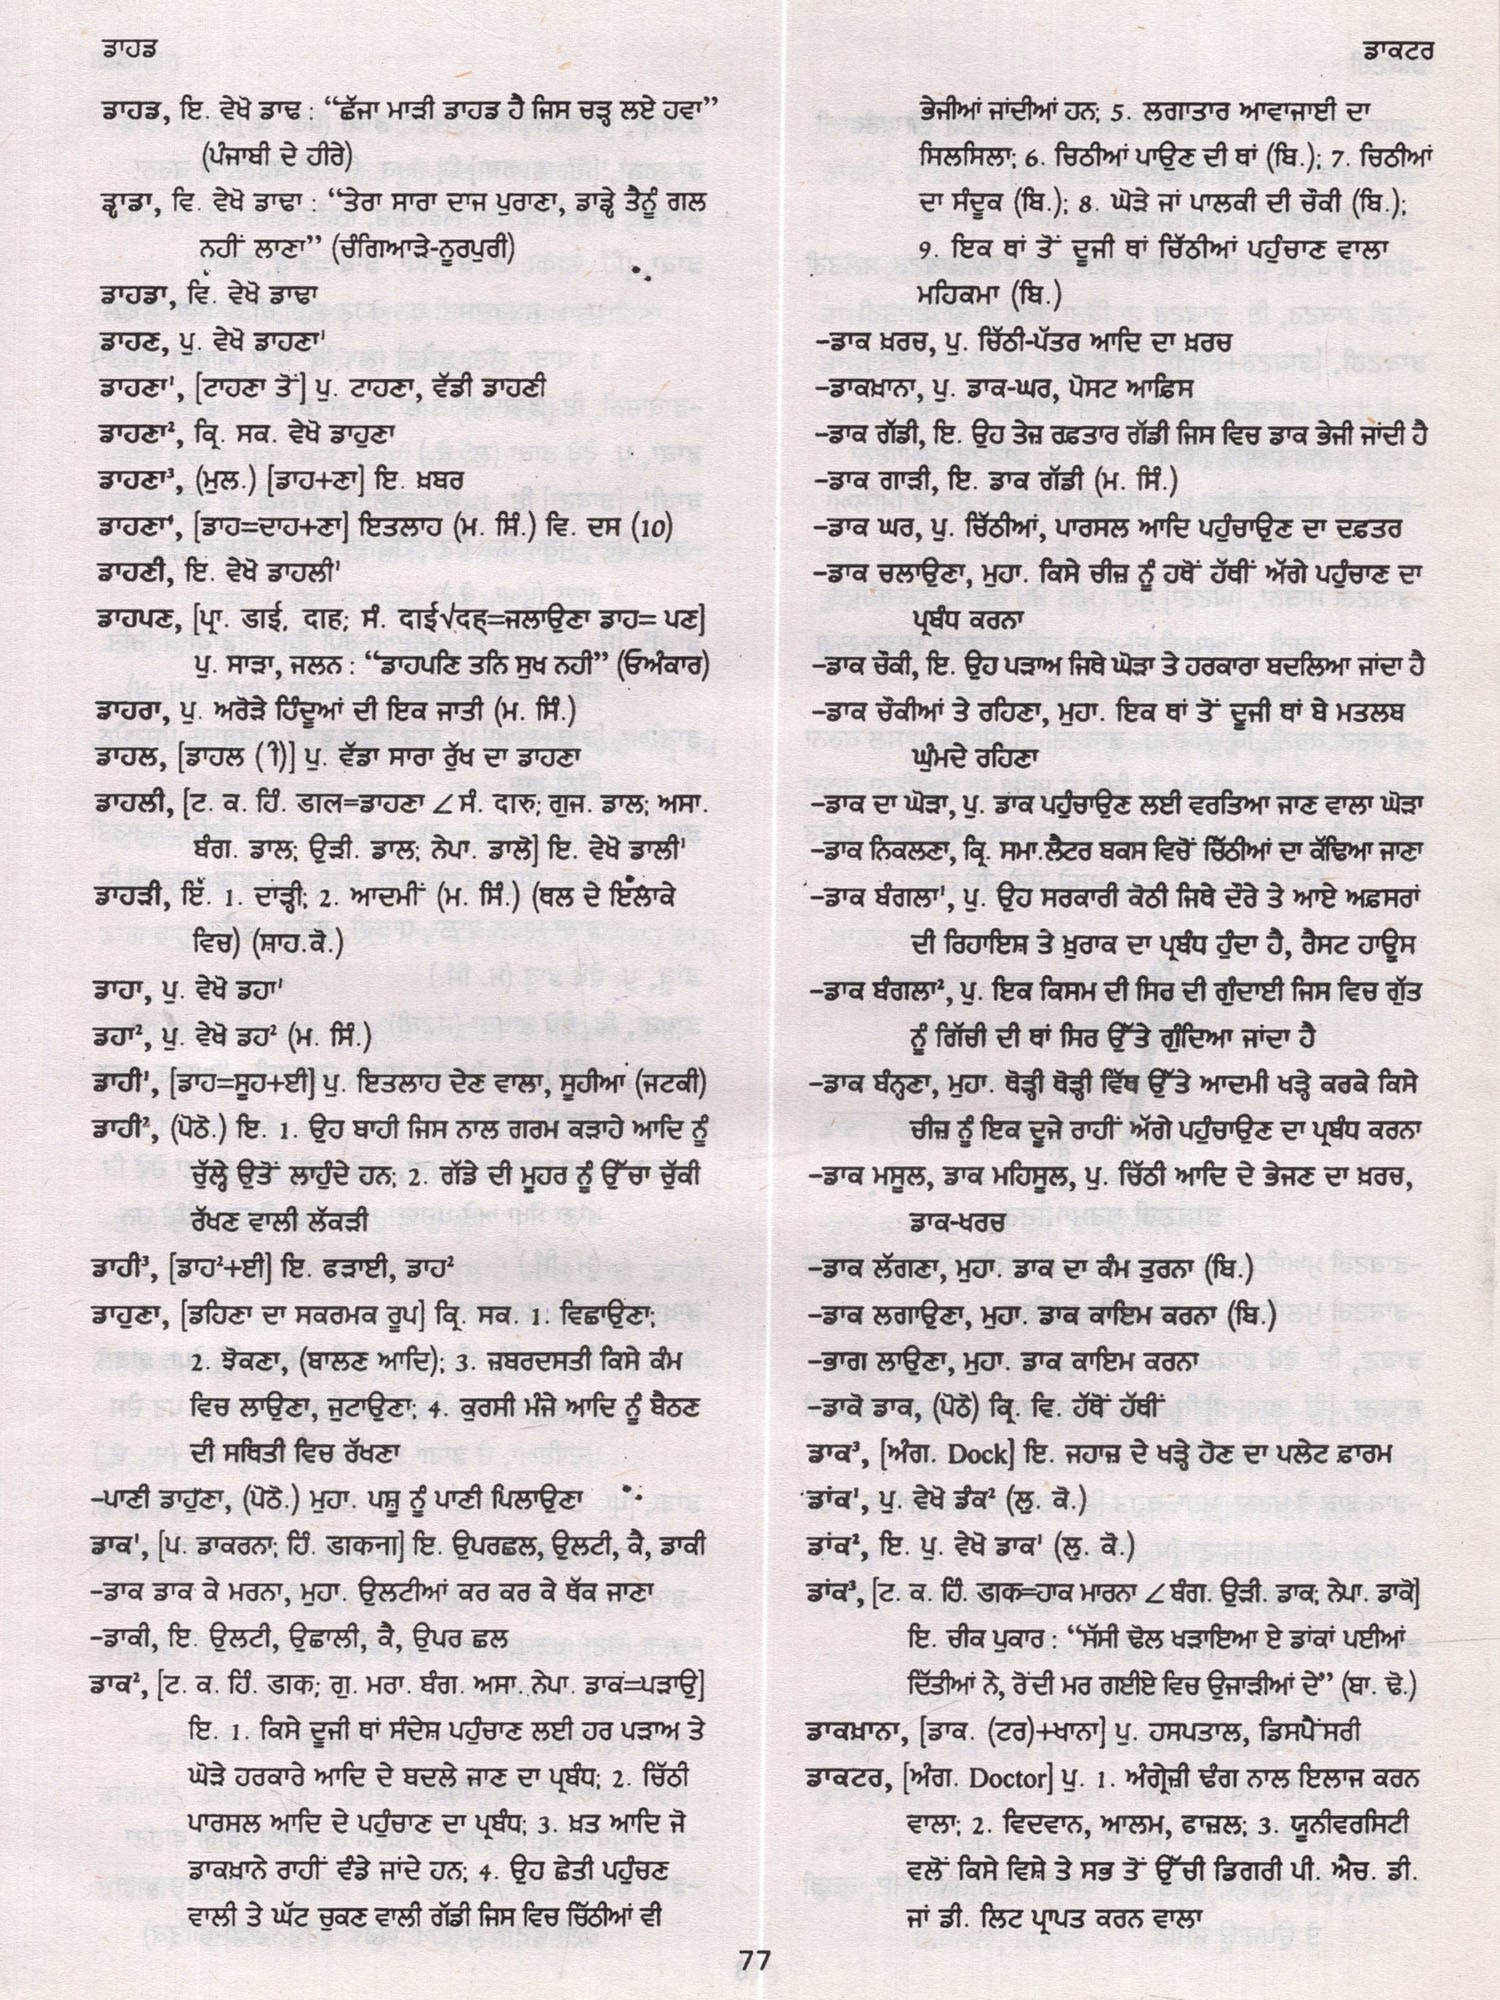 ਡਾਹਡ
ਡਾਹਡ, ਇ. ਵੇਖੋ ਡਾਢ : “ਛੱਜਾ ਮਾੜੀ ਡਾਹਡ ਹੈ ਜਿਸ ਚੜ੍ਹ ਲਏ ਹਵਾ”
(ਪੰਜਾਬੀ ਦੇ ਹੀਰੇ)
ਡ੍ਹਾਡਾ, ਵਿ. ਵੇਖੋ ਡਾਢਾ : “ਤੇਰਾ ਸਾਰਾ ਦਾਜ ਪੁਰਾਣਾ, ਡਾੜ੍ਹੇ ਤੈਨੂੰ ਗਲ
ਨਹੀਂ ਲਾਣਾ” (ਚੰਗਿਆੜੇ-ਨੂਰਪੁਰੀ)
ਡਾਹਡਾ, ਵਿ. ਵੇਖੋ ਡਾਢਾ
ਡਾਹਣ, ਪੁ. ਵੇਖੋ ਡਾਹਣਾ¹
ਡਾਹਣਾ¹, [ਟਾਹਣਾ ਤੋਂ] ਪੁ. ਟਾਹਣਾ, ਵੱਡੀ ਡਾਹਣੀ
ਡਾਹਣਾ², ਕ੍ਰਿ. ਸਕ. ਵੇਖੋ ਡਾਹੁਣਾ
ਡਾਹਣਾ³, (ਮੁਲ.) [ਡਾਹ+ਣਾ] ਇ. ਖ਼ਬਰ
ਡਾਹਣਾ⁴, [ਡਾਹ=ਦਾਹ+ਣਾ] ਇਤਲਾਹ (ਮ. ਸਿੰ.) ਵਿ. ਦਸ (10)
ਡਾਹਣੀ, ਇ. ਵੇਖੋ ਡਾਹਲੀ¹
ਡਾਹਪਣ, [ਪ੍ਰਾ. डाई, दाह; ਸੰ. दाई√दह्=ਜਲਾਉਣਾ ਡਾਹ= ਪਣ]
ਪੁ. ਸਾੜਾ, ਜਲਨ : “ਡਾਹਪਣਿ ਤਨਿ ਸੁਖ ਨਹੀ” (ਓਅੰਕਾਰ)
ਡਾਹਰਾ, ਪੁ. ਅਰੋੜੇ ਹਿੰਦੂਆਂ ਦੀ ਇਕ ਜਾਤੀ (ਮ. ਸਿੰ.)
ਡਾਹਲ, [ਡਾਹਲ (ੀ)] ਪੁ. ਵੱਡਾ ਸਾਰਾ ਰੁੱਖ ਦਾ ਡਾਹਣਾ
ਡਾਹਲੀ, [ਟ. ਕ. ਹਿੰ. डाल=ਡਾਹਣਾ ∠ ਸੰ. दारु; ਗੁਜ. ਡਾਲ; ਅਸਾ.
ਬੰਗ. ਡਾਲ; ਉੜੀ. ਡਾਲ; ਨੇਪਾ. ਡਾਲੋ] ਇ. ਵੇਖੋ ਡਾਲੀ¹
ਡਾਹੜੀ, ਇ. 1. ਦਾੜ੍ਹੀ; 2. ਆਦਮੀਂ (ਮ. ਸਿੰ.) (ਥਲ ਦੇ ਇਲਾਕੇ
ਵਿਚ) (ਸ਼ਾਹ.ਕੋ.)
ਡਾਹਾ, ਪੁ. ਵੇਖੋ ਡਹਾ¹
ਡਹਾ², ਪੁ. ਵੇਖੋ ਡਹ² (ਮ. ਸਿੰ.)
ਡਾਹੀ¹, [ਡਾਹ=ਸੂਹ+ਈ] ਪੁ. ਇਤਲਾਹ ਦੇਣ ਵਾਲਾ, ਸੂਹੀਆ (ਜਟਕੀ)
ਡਾਹੀ², (ਪੋਠੋ.) ਇ. 1. ਉਹ ਬਾਹੀ ਜਿਸ ਨਾਲ ਗਰਮ ਕੜਾਹੇ ਆਦਿ ਨੂੰ
ਚੁੱਲ੍ਹੇ ਉਤੋਂ ਲਾਹੁੰਦੇ ਹਨ; 2. ਗੱਡੇ ਦੀ ਮੂਹਰ ਨੂੰ ਉੱਚਾ ਚੁੱਕੀ
ਰੱਖਣ ਵਾਲੀ ਲੱਕੜੀ
ਡਾਹੀ³, [ਡਾਹ²+ਈ] ਇ. ਫੜਾਈ, ਡਾਹ²
ਡਾਹੁਣਾ, [ਡਹਿਣਾ ਦਾ ਸਕਰਮਕ ਰੂਪ] ਕ੍ਰਿ. ਸਕ. 1. ਵਿਛਾਉਣਾ;
2. ਝੋਕਣਾ, (ਬਾਲਣ ਆਦਿ); 3. ਜ਼ਬਰਦਸਤੀ ਕਿਸੇ ਕੰਮ
ਵਿਚ ਲਾਉਣਾ, ਜੁਟਾਉਣਾ; 4. ਕੁਰਸੀ ਮੰਜੇ ਆਦਿ ਨੂੰ ਬੈਠਣ
ਦੀ ਸਥਿਤੀ ਵਿਚ ਰੱਖਣਾ
–ਪਾਣੀ ਡਾਹੁਣਾ, (ਪੋਠੋ.) ਮੁਹਾ. ਪਸ਼ੂ ਨੂੰ ਪਾਣੀ ਪਿਲਾਉਣਾ
ਡਾਕ¹, [ਪ. ਡਾਕਰਨਾ; ਹਿੰ. डाकना] ਇ. ਉਪਰਛਲ, ਉਲਟੀ, ਕੈ, ਡਾਕੀ
–ਡਾਕ ਡਾਕ ਕੇ ਮਰਨਾ, ਮੁਹਾ. ਉਲਟੀਆਂ ਕਰ ਕਰ ਕੇ ਥੱਕ ਜਾਣਾ
–ਡਾਕੀ, ਇ. ਉਲਟੀ, ਉਛਾਲੀ, ਕੈ, ਉਪਰ ਛਲ
ਡਾਕ², [ਟ. ਕ. ਹਿੰ. डाक; ਗੁ. ਮਰਾ. ਬੰਗ. ਅਸਾ. ਨੇਪਾ. ਡਾਕ=ਪੜਾਉ]
ਇ. 1. ਕਿਸੇ ਦੂਜੀ ਥਾਂ ਸੰਦੇਸ਼ ਪਹੁੰਚਾਣ ਲਈ ਹਰ ਪੜਾਅ ਤੇ
ਘੋੜੇ ਹਰਕਾਰੇ ਆਦਿ ਦੇ ਬਦਲੇ ਜਾਣ ਦਾ ਪ੍ਰਬੰਧ; 2. ਚਿੱਠੀ
ਪਾਰਸਲ ਆਦਿ ਦੇ ਪਹੁੰਚਾਣ ਦਾ ਪ੍ਰਬੰਧ; 3. ਖ਼ਤ ਆਦਿ ਜੋ
ਡਾਕਖ਼ਾਨੇ ਰਾਹੀਂ ਵੰਡੇ ਜਾਂਦੇ ਹਨ; 4. ਉਹ ਛੇਤੀ ਪਹੁੰਚਣ
ਵਾਲੀ ਤੇ ਘੱਟ ਚੁਕਣ ਵਾਲੀ ਗੱਡੀ ਜਿਸ ਵਿਚ ਚਿੱਠੀਆਂ ਵੀ
ਡਾਕਟਰ
ਭੇਜੀਆਂ ਜਾਂਦੀਆਂ ਹਨ; 5. ਲਗਾਤਾਰ ਆਵਾਜਾਈ ਦਾ
ਸਿਲਸਿਲਾ; 6. ਚਿਠੀਆਂ ਪਾਉਣ ਦੀ ਥਾਂ (ਬਿ.); 7. ਚਿਠੀਆਂ
ਦਾ ਸੰਦੂਕ (ਬਿ.); 8. ਘੋੜੇ ਜਾਂ ਪਾਲਕੀ ਦੀ ਚੌਕੀ (ਬਿ.);
9. ਇਕ ਥਾਂ ਤੋਂ ਦੂਜੀ ਥਾਂ ਚਿੱਠੀਆਂ ਪਹੁੰਚਾਣ ਵਾਲਾ
ਮਹਿਕਮਾ (ਬਿ.)
–ਡਾਕ ਖ਼ਰਚ, ਪੁ. ਚਿੱਠੀ-ਪੱਤਰ ਆਦਿ ਦਾ ਖ਼ਰਚ
–ਡਾਕਖ਼ਾਨਾ, ਪੁ. ਡਾਕ-ਘਰ, ਪੋਸਟ ਆਫ਼ਿਸ
–ਡਾਕ ਗੱਡੀ, ਇ. ਉਹ ਤੇਜ਼ ਰਫ਼ਤਾਰ ਗੱਡੀ ਜਿਸ ਵਿਚ ਡਾਕ ਭੇਜੀ ਜਾਂਦੀ ਹੈ
–ਡਾਕ ਗਾੜੀ, ਇ. ਡਾਕ ਗੱਡੀ (ਮ. ਸਿੰ.)
–ਡਾਕ ਘਰ, ਪੁ. ਚਿੱਠੀਆਂ, ਪਾਰਸਲ ਆਦਿ ਪਹੁੰਚਾਉਣ ਦਾ ਦਫ਼ਤਰ
–ਡਾਕ ਚਲਾਉਣਾ, ਮੁਹਾ. ਕਿਸੇ ਚੀਜ਼ ਨੂੰ ਹਥੋਂ ਹੱਥੀਂ ਅੱਗੇ ਪਹੁੰਚਾਣ ਦਾ
ਪ੍ਰਬੰਧ ਕਰਨਾ
–ਡਾਕ ਚੌਕੀ, ਇ. ਉਹ ਪੜਾਅ ਜਿਥੇ ਘੋੜਾ ਤੇ ਹਰਕਾਰਾ ਬਦਲਿਆ ਜਾਂਦਾ ਹੈ
–ਡਾਕ ਚੌਕੀਆਂ ਤੇ ਰਹਿਣਾ, ਮੁਹਾ. ਇਕ ਥਾਂ ਤੋਂ ਦੂਜੀ ਥਾਂ ਬੇ ਮਤਲਬ
ਘੁੰਮਦੇ ਰਹਿਣਾ
–ਡਾਕ ਦਾ ਘੋੜਾ, ਪੁ. ਡਾਕ ਪਹੁੰਚਾਉਣ ਲਈ ਵਰਤਿਆ ਜਾਣ ਵਾਲਾ ਘੋੜਾ
–ਡਾਕ ਨਿਕਲਣਾ, ਕ੍ਰਿ. ਸਮਾ.ਲੈਟਰ ਬਕਸ ਵਿਚੋਂ ਚਿੱਠੀਆਂ ਦਾ ਕੱਢਿਆ ਜਾਣਾ
–ਡਾਕ ਬੰਗਲਾ¹, ਪੁ. ਉਹ ਸਰਕਾਰੀ ਕੋਠੀ ਜਿਥੇ ਦੌਰੇ ਤੇ ਆਏ ਅਫ਼ਸਰਾਂ
ਦੀ ਰਿਹਾਇਸ਼ ਤੇ ਖ਼ੁਰਾਕ ਦਾ ਪ੍ਰਬੰਧ ਹੁੰਦਾ ਹੈ, ਰੈਸਟ ਹਾਊਸ
–ਡਾਕ ਬੰਗਲਾ², ਪੁ. ਇਕ ਕਿਸਮ ਦੀ ਸਿਰ ਦੀ ਗੁੰਦਾਈ ਜਿਸ ਵਿਚ ਗੁੱਤ
ਨੂੰ ਗਿੱਚੀ ਦੀ ਥਾਂ ਸਿਰ ਉੱਤੇ ਗੁੰਦਿਆ ਜਾਂਦਾ ਹੈ
–ਡਾਕ ਬੰਨ੍ਹਣਾ, ਮੁਹਾ. ਥੋੜ੍ਹੀ ਥੋੜ੍ਹੀ ਵਿੱਥ ਉੱਤੇ ਆਦਮੀ ਖੜ੍ਹੇ ਕਰਕੇ ਕਿਸੇ
ਚੀਜ਼ ਨੂੰ ਇਕ ਦੂਜੇ ਰਾਹੀਂ ਅੱਗੇ ਪਹੁੰਚਾਉਣ ਦਾ ਪ੍ਰਬੰਧ ਕਰਨਾ
–ਡਾਕ ਮਸੂਲ, ਡਾਕ ਮਹਿਸੂਲ, ਪੁ. ਚਿੱਠੀ ਆਦਿ ਦੇ ਭੇਜਣ ਦਾ ਖ਼ਰਚ,
ਡਾਕ-ਖਰਚ
–ਡਾਕ ਲੱਗਣਾ, ਮੁਹਾ. ਡਾਕ ਦਾ ਕੰਮ ਤੁਰਨਾ (ਬਿ.)
–ਡਾਕ ਲਗਾਉਣਾ, ਮੁਹਾ. ਡਾਕ ਕਾਇਮ ਕਰਨਾ (ਬਿ.)
–ਭਾਗ ਲਾਉਣਾ, ਮੁਹਾ. ਡਾਕ ਕਾਇਮ ਕਰਨਾ
–ਡਾਕੋ ਡਾਕ, (ਪੋਠੋ) ਕ੍ਰਿ. ਵਿ. ਹੱਥੋਂ ਹੱਥੀਂ
ਡਾਕ³, [ਅੰਗ. Dock] ਇ. ਜਹਾਜ਼ ਦੇ ਖੜ੍ਹੇ ਹੋਣ ਦਾ ਪਲੇਟ ਫ਼ਾਰਮ
ਡਾਂਕ¹, ਪੁ. ਵੇਖੋ ਡੰਕ² (ਲੁ. ਕੋ.)
ਡਾਂਕ², ਇ. ਪੁ. ਵੇਖੋ ਡਾਕ¹ (ਲੁ. ਕੋ.)
ਡਾਂਕ³, [ਟ. ਕ. ਹਿੰ. डाक=ਹਾਕ ਮਾਰਨਾ ∠ ਬੰਗ. ਉੜੀ. ਡਾਕ; ਨੇਪਾ. ਡਾਕੋ]
ਇ. ਚੀਕ ਪੁਕਾਰ : “ਸੱਸੀ ਢੋਲ ਖੜਾਇਆ ਏ ਡਾਂਕਾਂ ਪਈਆਂ
ਦਿੱਤੀਆਂ ਨੇ, ਰੋਂਦੀ ਮਰ ਗਈਏ ਵਿਚ ਉਜਾੜੀਆਂ ਦੇ” (ਬਾ. ਢੋ.)
ਡਾਕਖ਼ਾਨਾ, [ਡਾਕ. (ਟਰ)+ਖਾਨਾ] ਪੁ. ਹਸਪਤਾਲ, ਡਿਸਪੈਂਸਰੀ
ਡਾਕਟਰ, [ਅੰਗ. Doctor] ਪੁ. 1. ਅੰਗ੍ਰੇਜ਼ੀ ਢੰਗ ਨਾਲ ਇਲਾਜ ਕਰਨ
ਵਾਲਾ; 2. ਵਿਦਵਾਨ, ਆਲਮ, ਫਾਜ਼ਲ; 3. ਯੂਨੀਵਰਸਿਟੀ
ਵਲੋਂ ਕਿਸੇ ਵਿਸ਼ੇ ਤੇ ਸਭ ਤੋਂ ਉੱਚੀ ਡਿਗਰੀ ਪੀ. ਐਚ. ਡੀ.
ਜਾਂ ਡੀ. ਲਿਟ ਪ੍ਰਾਪਤ ਕਰਨ ਵਾਲਾ
77